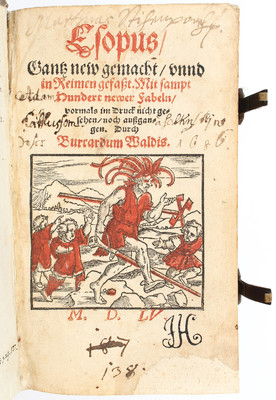 Esopus/
Gantz new gemacht/ vnnd
in Reimen gefaßt. Mit sampt
Hundert newer Fabeln/
vormals im Druck nicht ge-
sehen/ noch außgan-
gen. Durch
Burcardum Waldis.
1686
M. D. LV
JH
138.